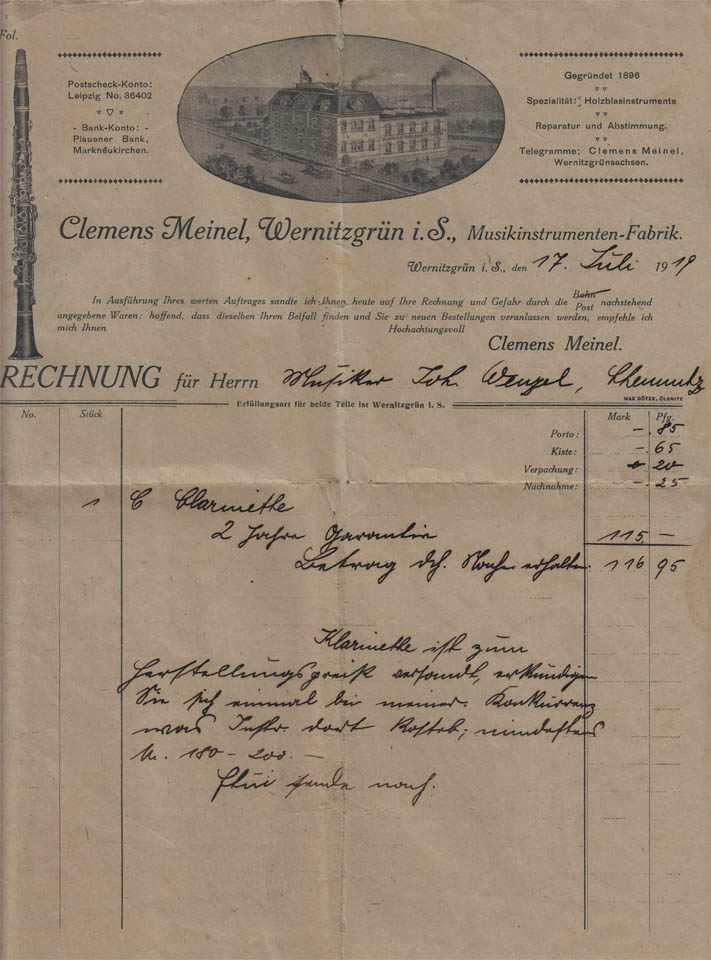 Fol.
Postscheck-Konto:
Leipzig No. 36402
- Bank-Konto: -
Plauener Bank,
Markneukirchen.
Gegründet 1896
Spezialität: Holzblasinstrumente
Reparatur und Abstimmung.
Telegramme: Clemens Meinel,
Wernitzgrünsachsen.
Clemens Meinel, Wernitzgrün i. S., Musikinstrumenten-Fabrik.
Wernitzgrün i. S., den 17. Juli 1919
In Ausführung Ihres werten Auftrages sandte ich Ihnen heute auf Ihre Rechnung und Gefahr durch die Bahn Post nachstehend
angegebene Waren: hoffend, dass dieselben Ihren Beifall finden und Sie zu neuen Bestellungen veranlassen werden, empfehle ich
mich Ihnen Hochachtungsvoll
Clemens Meinel.
RECHNUNG für Herrn Musiker Joh. Wenzel, Chemnitz
Erfüllungsort für beide Teile ist Wernitzgrün i. S.
MAX DÖTZE, ÖLSNITZ
No. Stück Mark Pfg.
Porto: — . 85
Kiste: — . 65
Verpachung: — 20
Nachnahme: — . 25
1 C Clarinette
2 Jahre Garantie 115. —
Betrag dch. Nachn. erhalten. 116 95
Klarinette ist zum
Herstellungspreiß versandt, erkundigen
Sie sich einmal bei meiner Konkurrenz
was Instr. dort kostet; mindestens
M. 180 - 200. —
Etui sende nach.